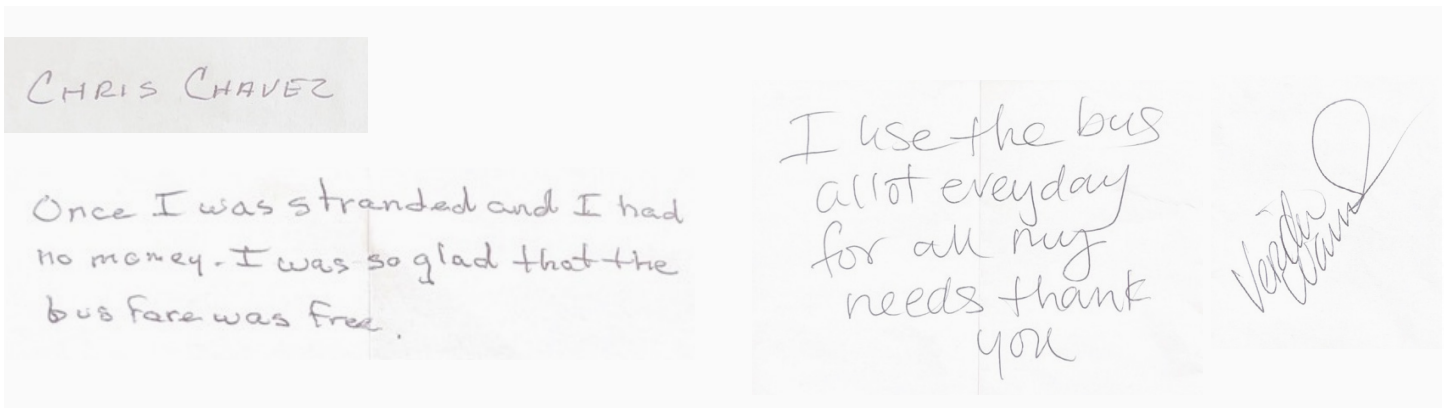 CHRIS CHAVEZ
Once I was stranded and I had
no money. I was so glad that the
bus fare was free.
I use the bus
allot eveyday
for all my
needs thank
you